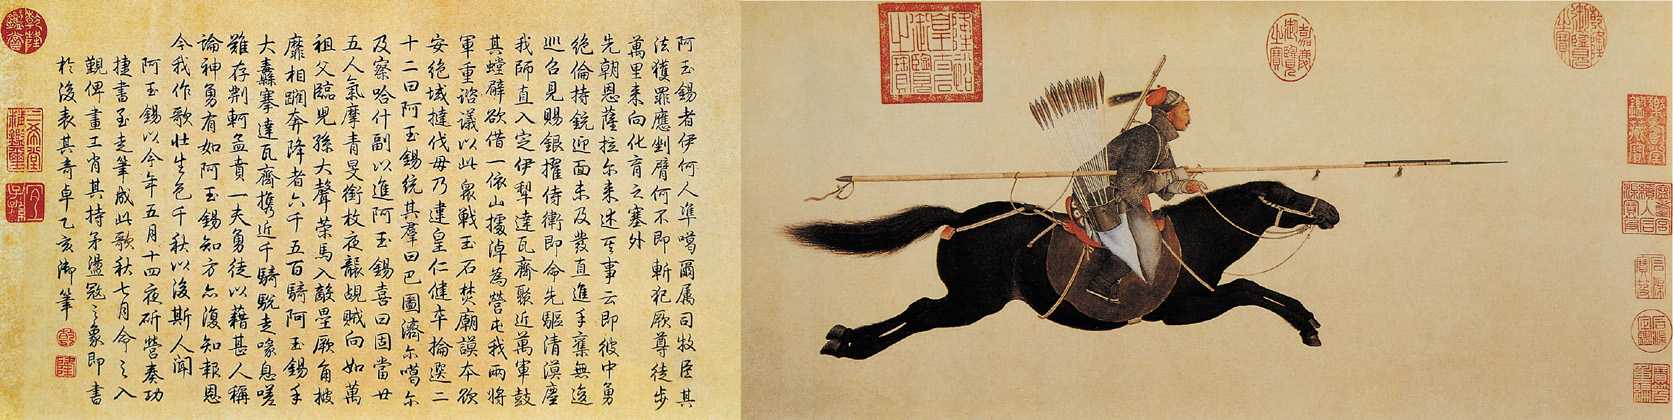 乾隆御覽之寶
嘉慶御覽之寶
阿玉錫者伊何人準噶爾属司牧臣其
法獲罪應剉臂何不即斬犯厥尊徒步
萬里来向化育之塞外
先朝恩薩拉尔来述其事云即彼中勇
絶倫持銃迎面未及發直進手奪無逡
巡召見賜銀擢侍衛即命先驅清漠塵
我師直入定伊犁達瓦齊聚近萬軍鼓
其螳臂欲借一依山據淖為營屯我兩將
軍重諮議以此衆戰玉石焚廟謨本欲
安絶域撻伐毋乃違皇仁健卒掄選二
十二曰阿玉錫統其羣曰巴圖濟尔噶尔
及察哈什副以進阿玉錫喜曰固當廿
五人氣摩青旻銜枚夜襲覘賊向如萬
祖父臨兒孫大聲策馬入敵壘厥角披
靡相躪奔降者六千五百騎阿玉錫手
大纛搴達瓦齊携近千騎駾走喙息嗟
難存荆軻孟賁一夫勇徒以藉甚人稱
論神勇有如阿玉錫知方亦復知報恩
今我作歌壯生色千秋以後斯人聞
阿玉錫以今年五月十四夜斫營奏功
捷書至走筆成此歌秋七月命之入
覲俾畫工肖其持矛盪寇之象即書
於後表其奇卓乙亥御筆
乾
隆
乾隆鑑賞
三希堂精鑑璽
宜子孫